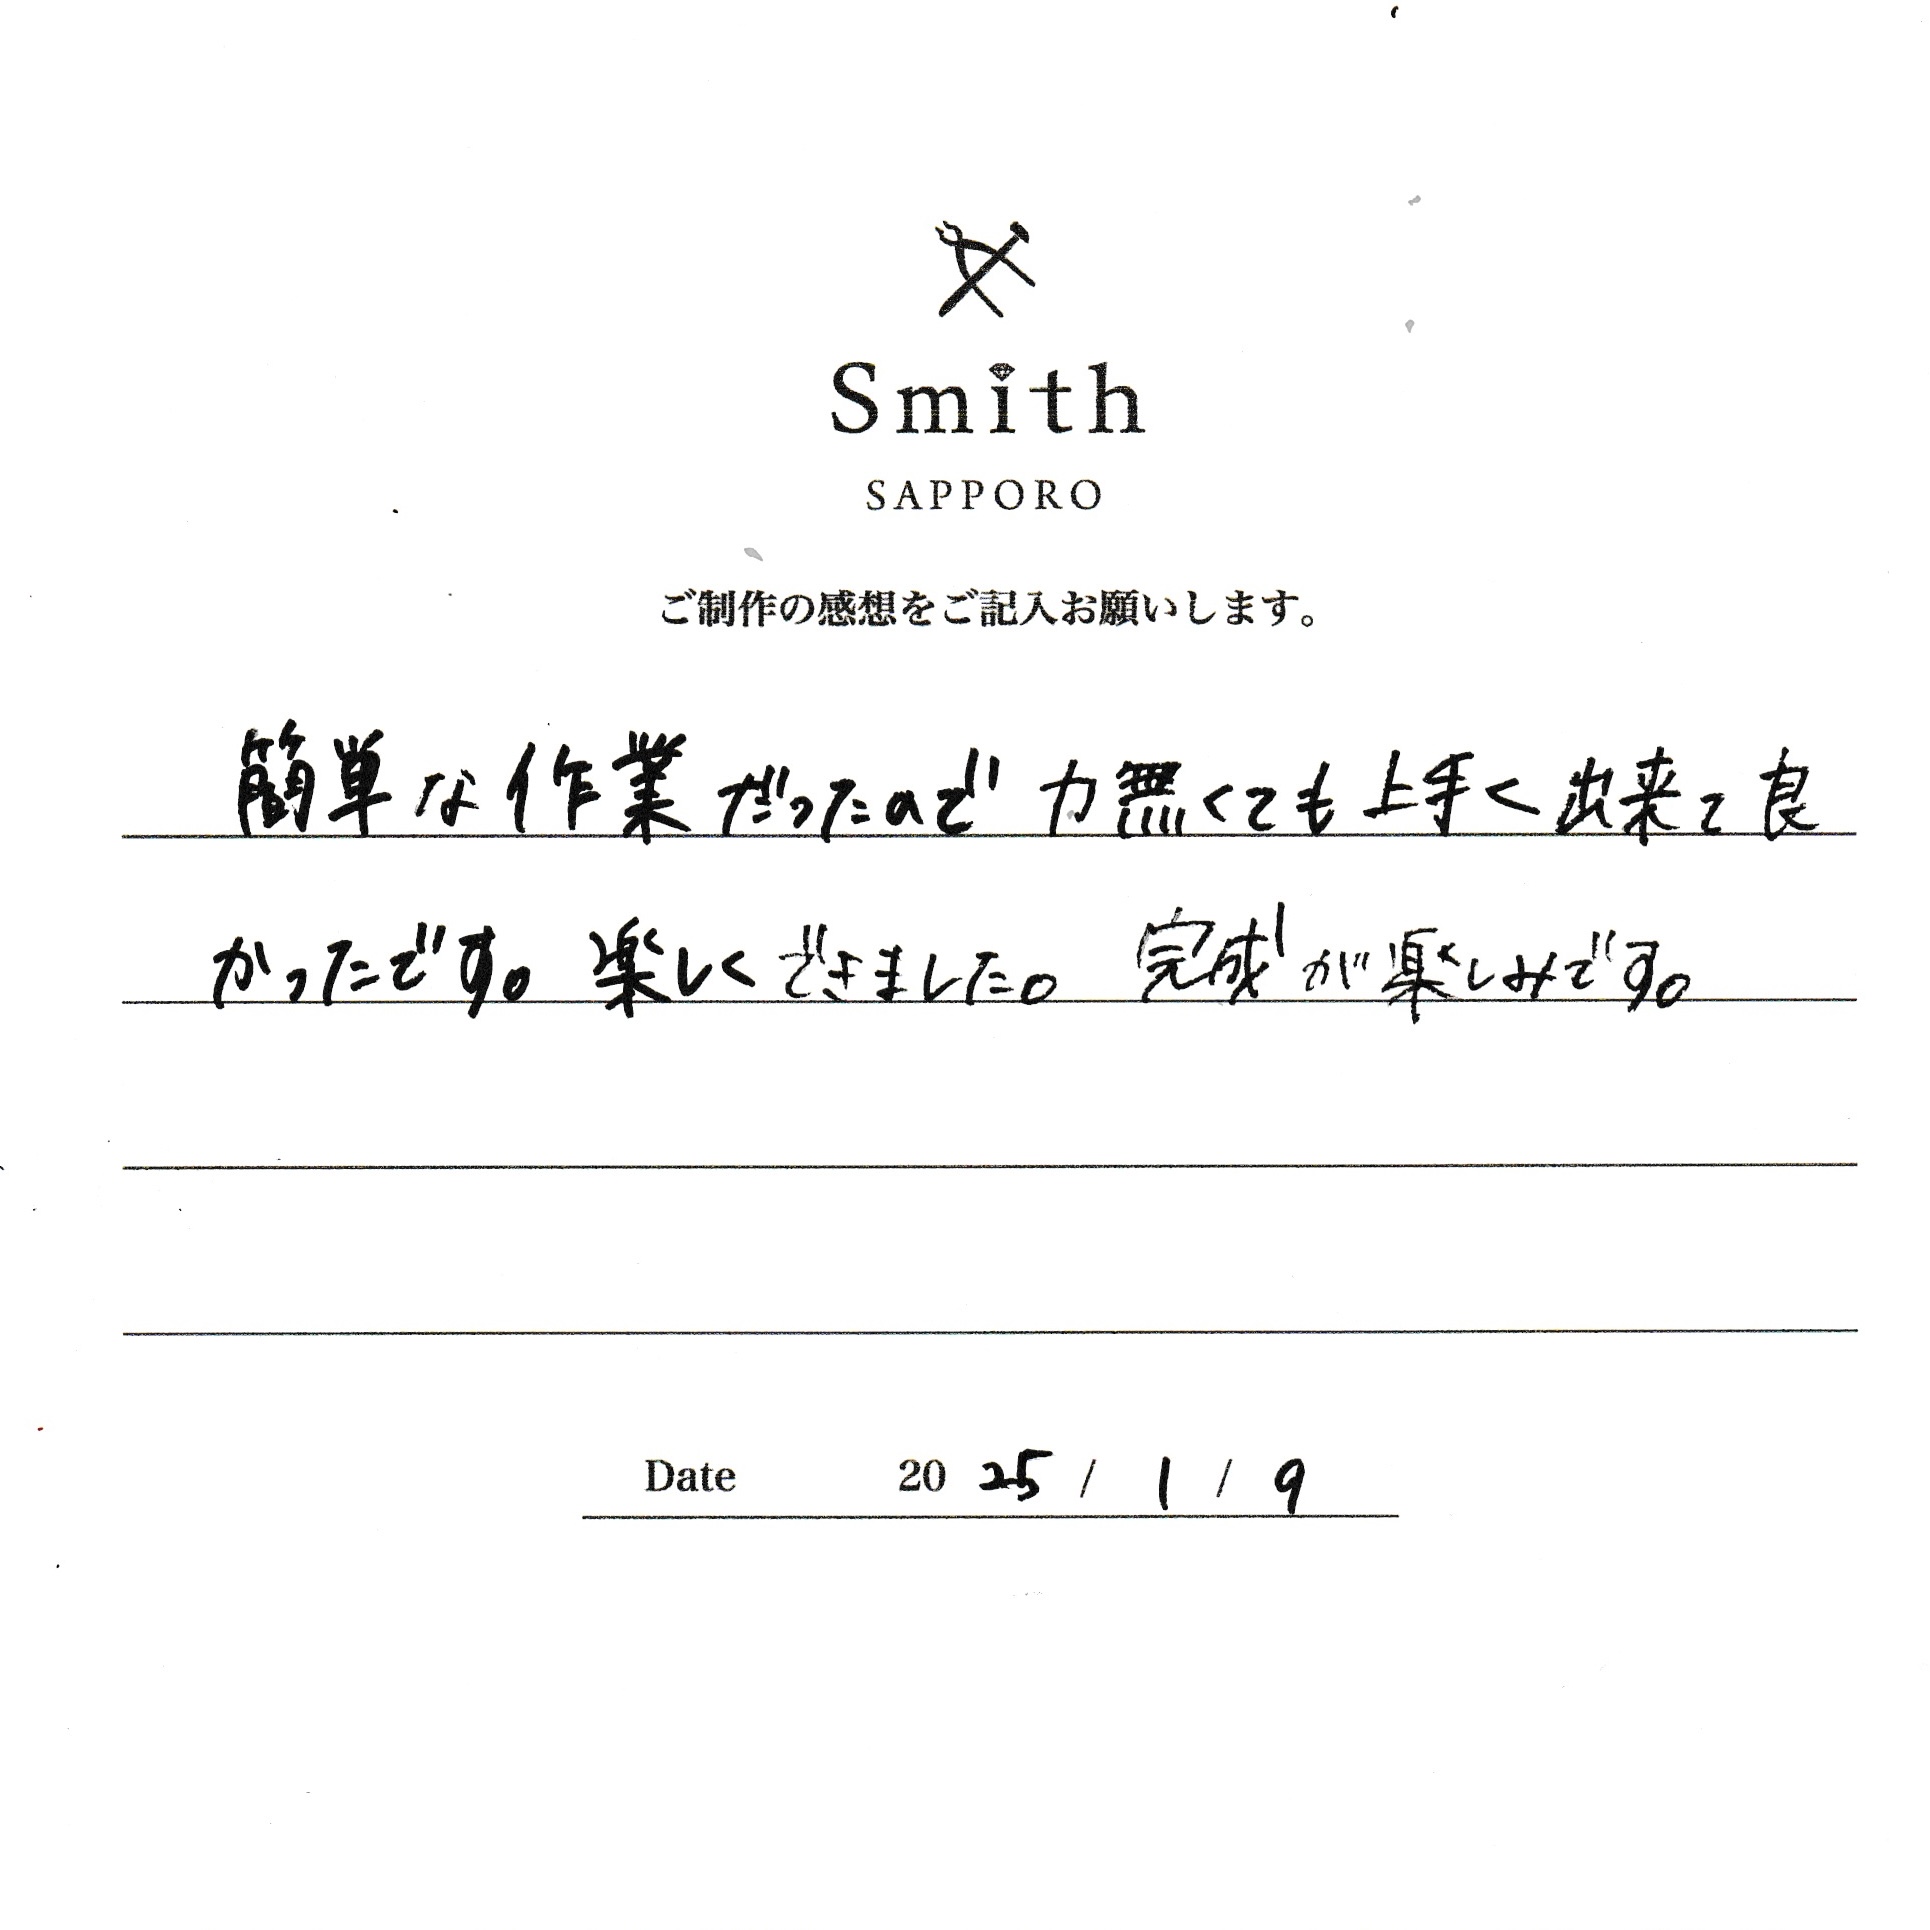 Smith
SAPPORO
ご制作の感想をご記入お願いします。
簡単な作業だったので力無くても上手く出来て良
かったです。楽しくできました。完成が楽しみです。
Date 2025/1/9